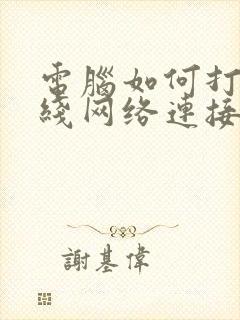 電腦如何打
綫网络連接
謝基偉